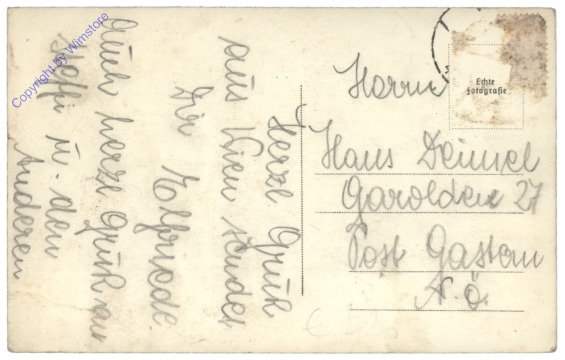 Herzl. Gruß
aus Wien sendet
Dir Elfriede
Auch herzl. Gruß an
u. den
Anderen
Herrn
Hans Deimel
Garolden 27
Post Gastern
N.Ö.
Echte
Fotografie
Copyright by Wimstore